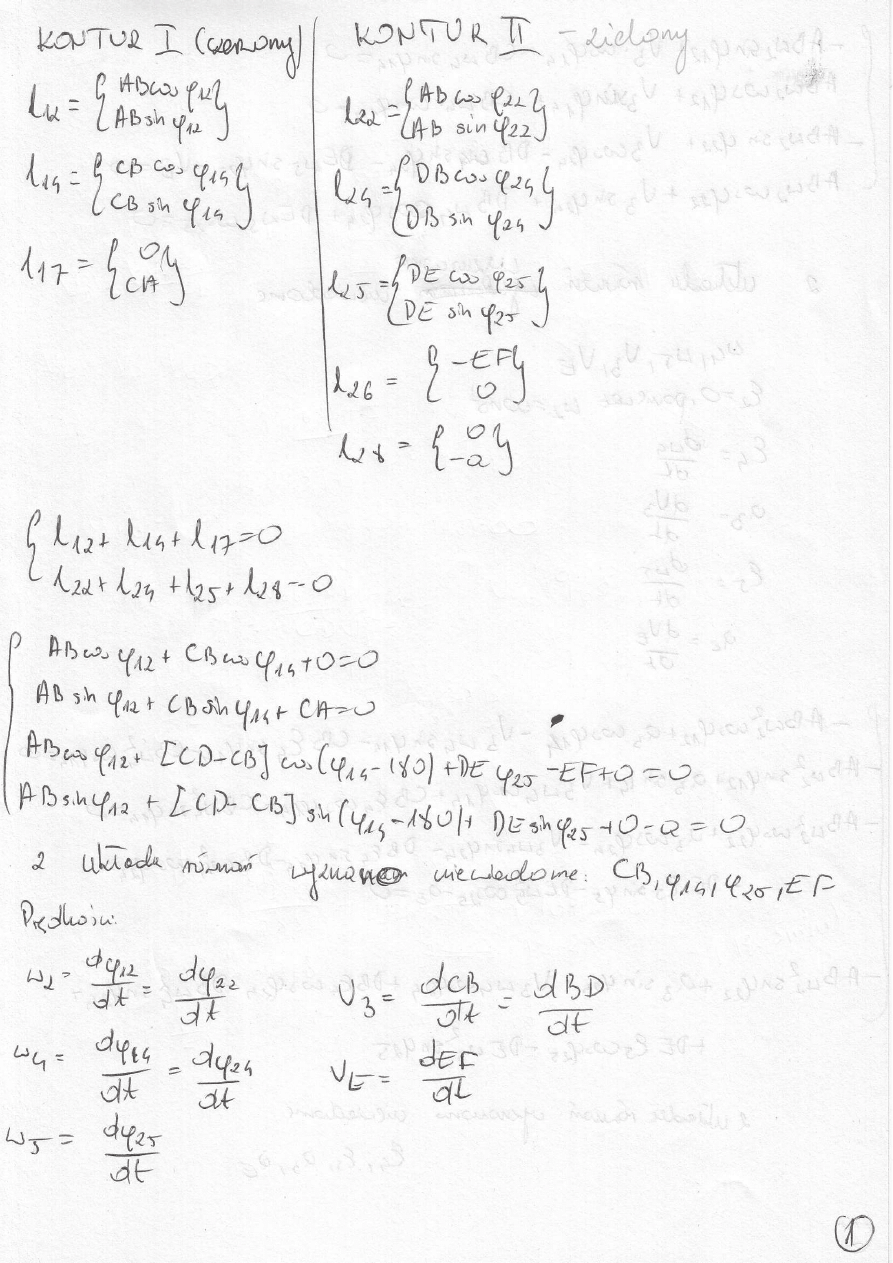 KONTUR I (czerwony)
l12 = {ABcos φ12}
{ABsin φ12}
l14 = {CB cos φ14}
{CB sin φ14}
l17 = {0}
{CA}
KONTUR II - zielony
l22 = {AB cos φ22}
{AB sin φ22}
l24 = {DB cos φ24}
{DB sin φ24}
l25 = {DE cos φ25}
{DE sin φ25}
l26 = {-EF}
{0}
l28 = {0}
{-a}
{ l12 + l14 + l17 = 0
l22 + l24 + l25 + l28 = 0
{ ABcos φ12 + CBcos φ14 + 0 = 0
AB sin φ12 + CBsin φ14 + CA = 0
ABcos φ12 + [CD-CB] cos(φ14-180) + DE φ25 - EF + 0 = 0
ABsin φ12 + [CD-CB] sin(φ14-180) + DEsin φ25 + 0 - a = 0
z układu równań niewiadome: CB, φ14, φ25, EF
Prędkości:
ω2 = dφ12/dt = dφ22/dt
V3 = dCB/dt = dBD/dt
ω4 = dφ14/dt = dφ24/dt
VE = dEF/dt
ω5 = dφ25/dt
1